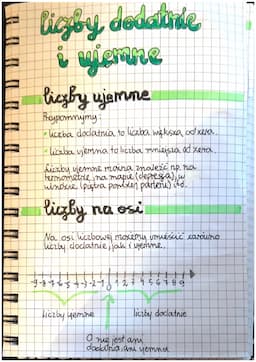 liczby dodatnie
i ujemne
liczby ujemne
Przypomnijmy:
liczba dodatnia to liczba większa od zera.
liczba ujemna to liczba mniejsza od zera.
Liczby ujemne można znaleźć np. na
termometrze, na mapie (depresja), w
windzie (piętra poniżej parteru) itd.
liczby na osi
Na osi liczbowej możemy umieścić zarówno
liczby dodatnie, jak i ujemne.
-9 -8 -7 -6 -5 -4 -3 -2 -1 0 1 2 3 4 5 6 7 8 9
liczby ujemne liczby dodatnie
0 nie jest ani
dodatnia, ani ujemna